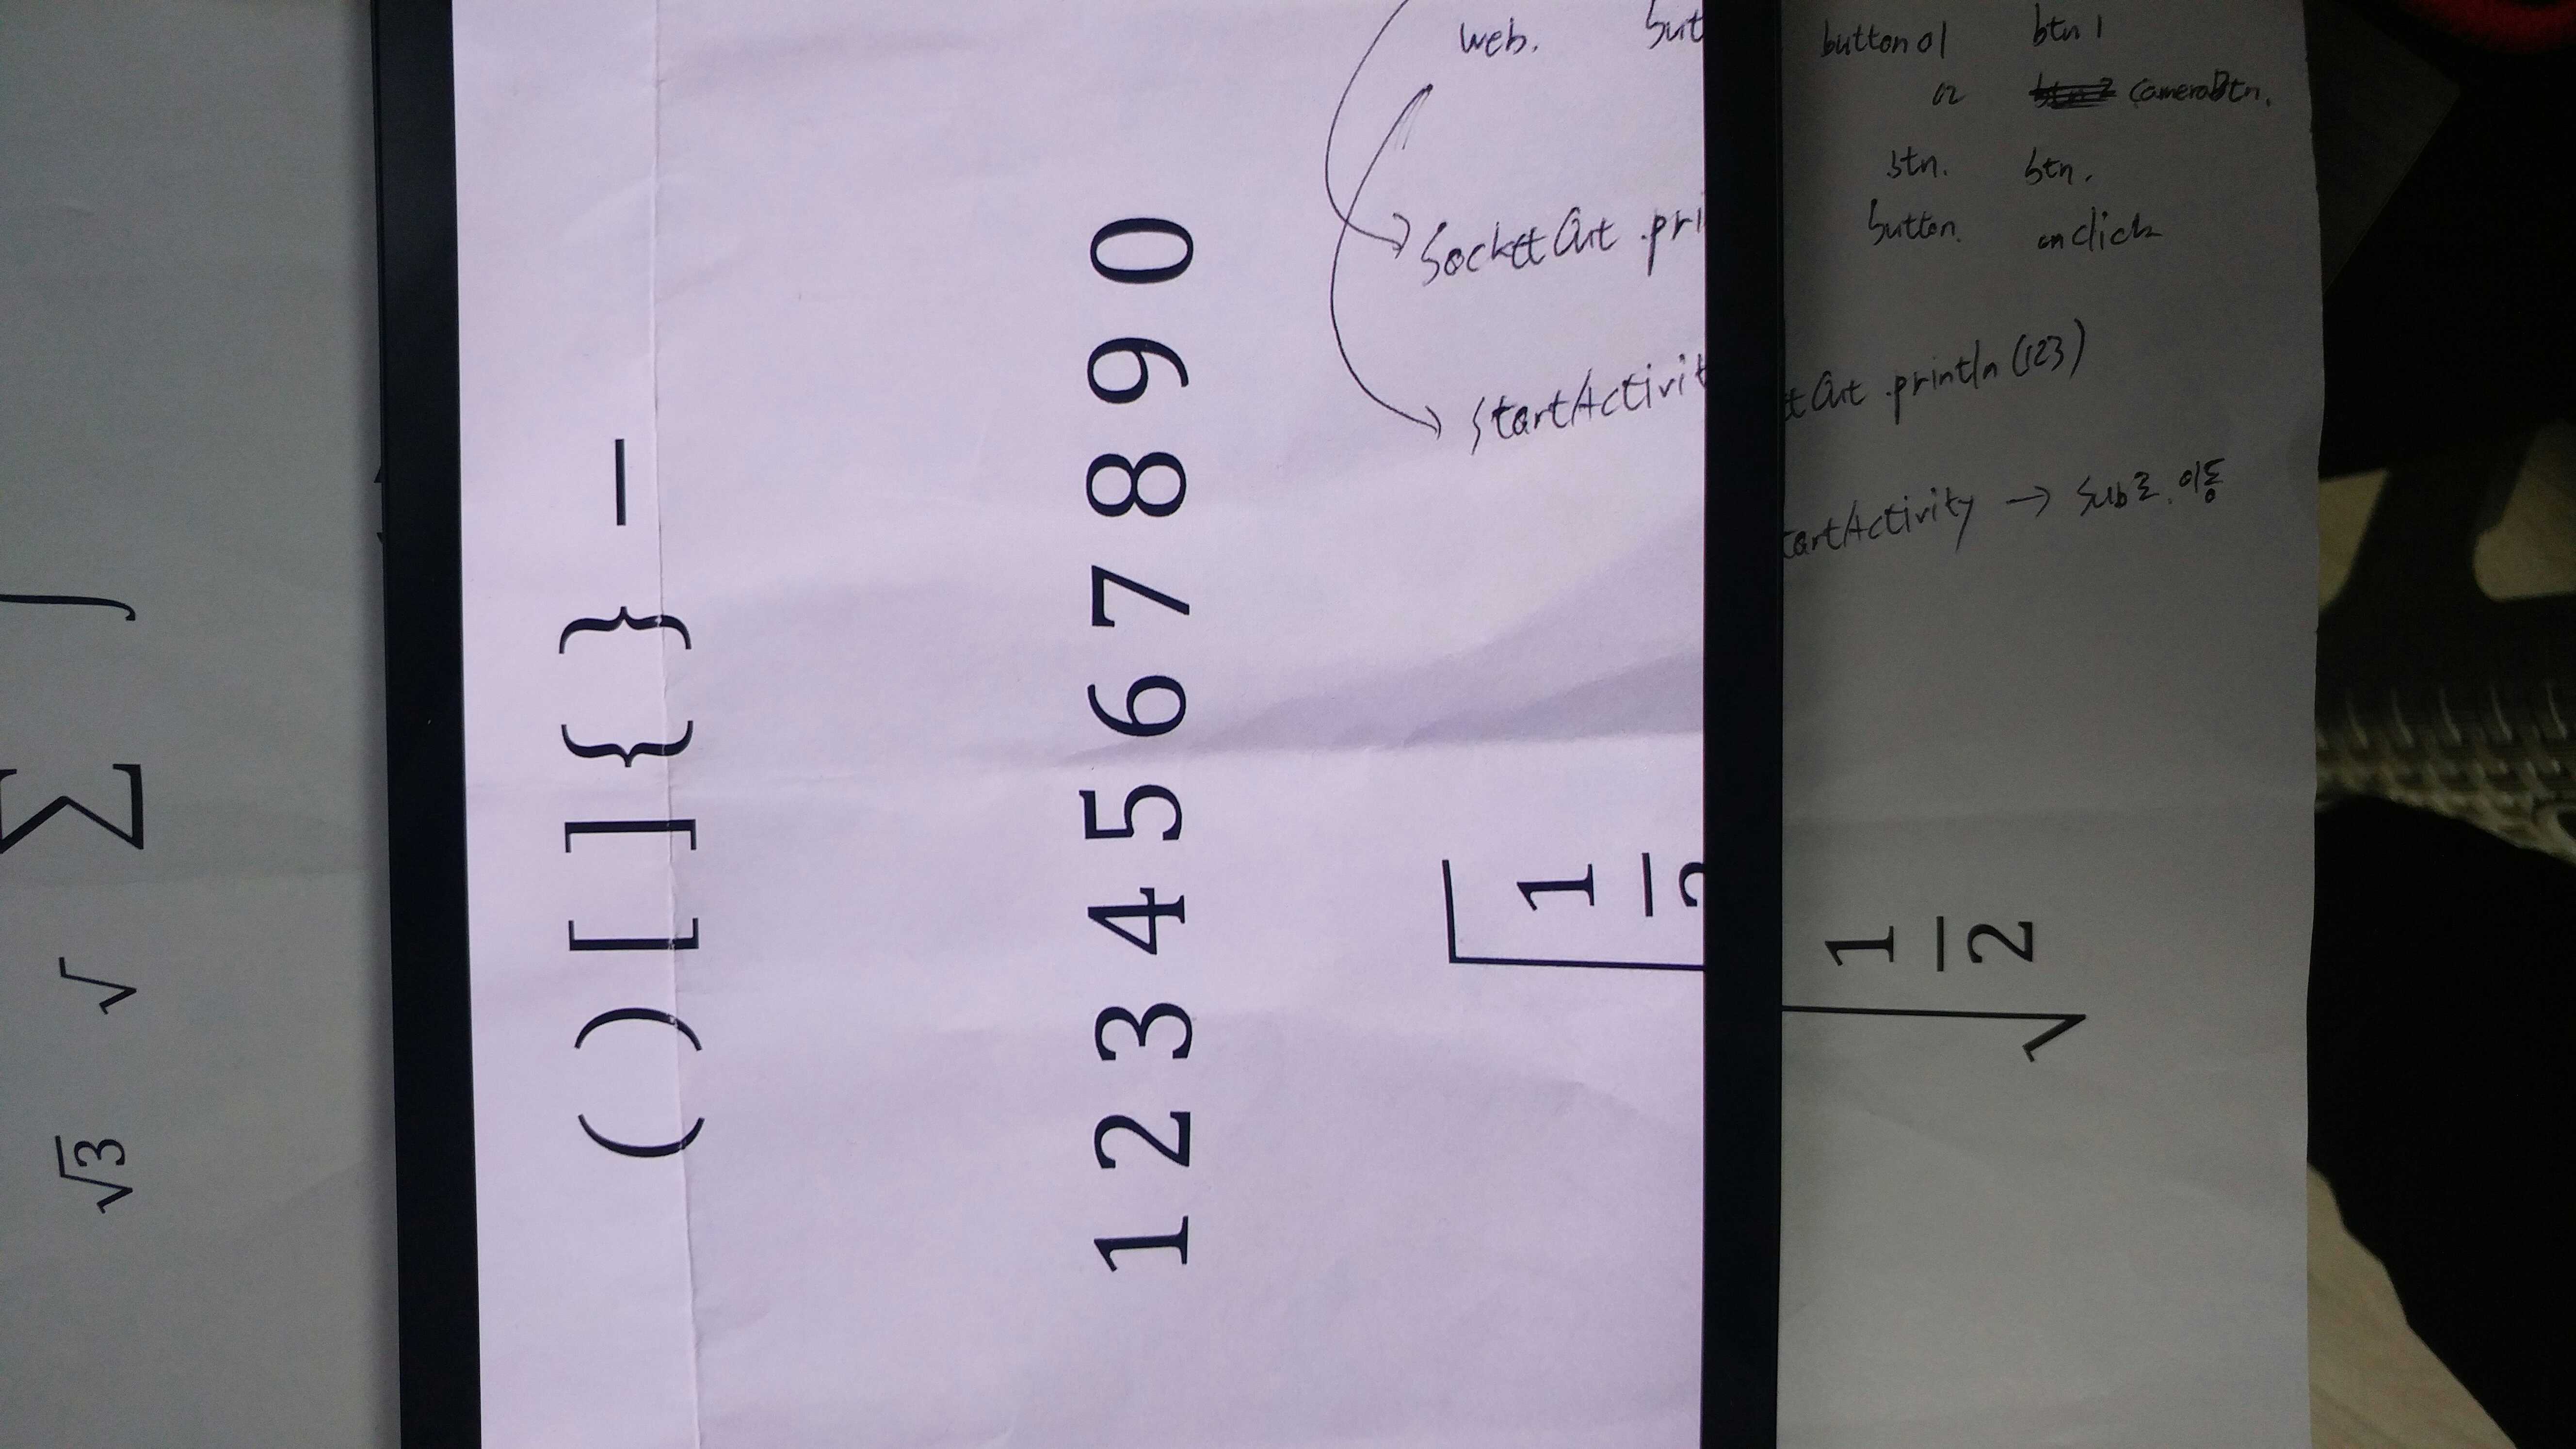 √3 √ ∑ ∫
( ) [ ] { } −
1 2 3 4 5 6 7 8 9 0
√
1
2
web. but
SocketOut .pri
startActivit
button 01 btn 1
02 cameraBtn.
btn. btn.
button. onclick
tOut .println (123)
tartActivity → Sub로. 이동
√
1
2